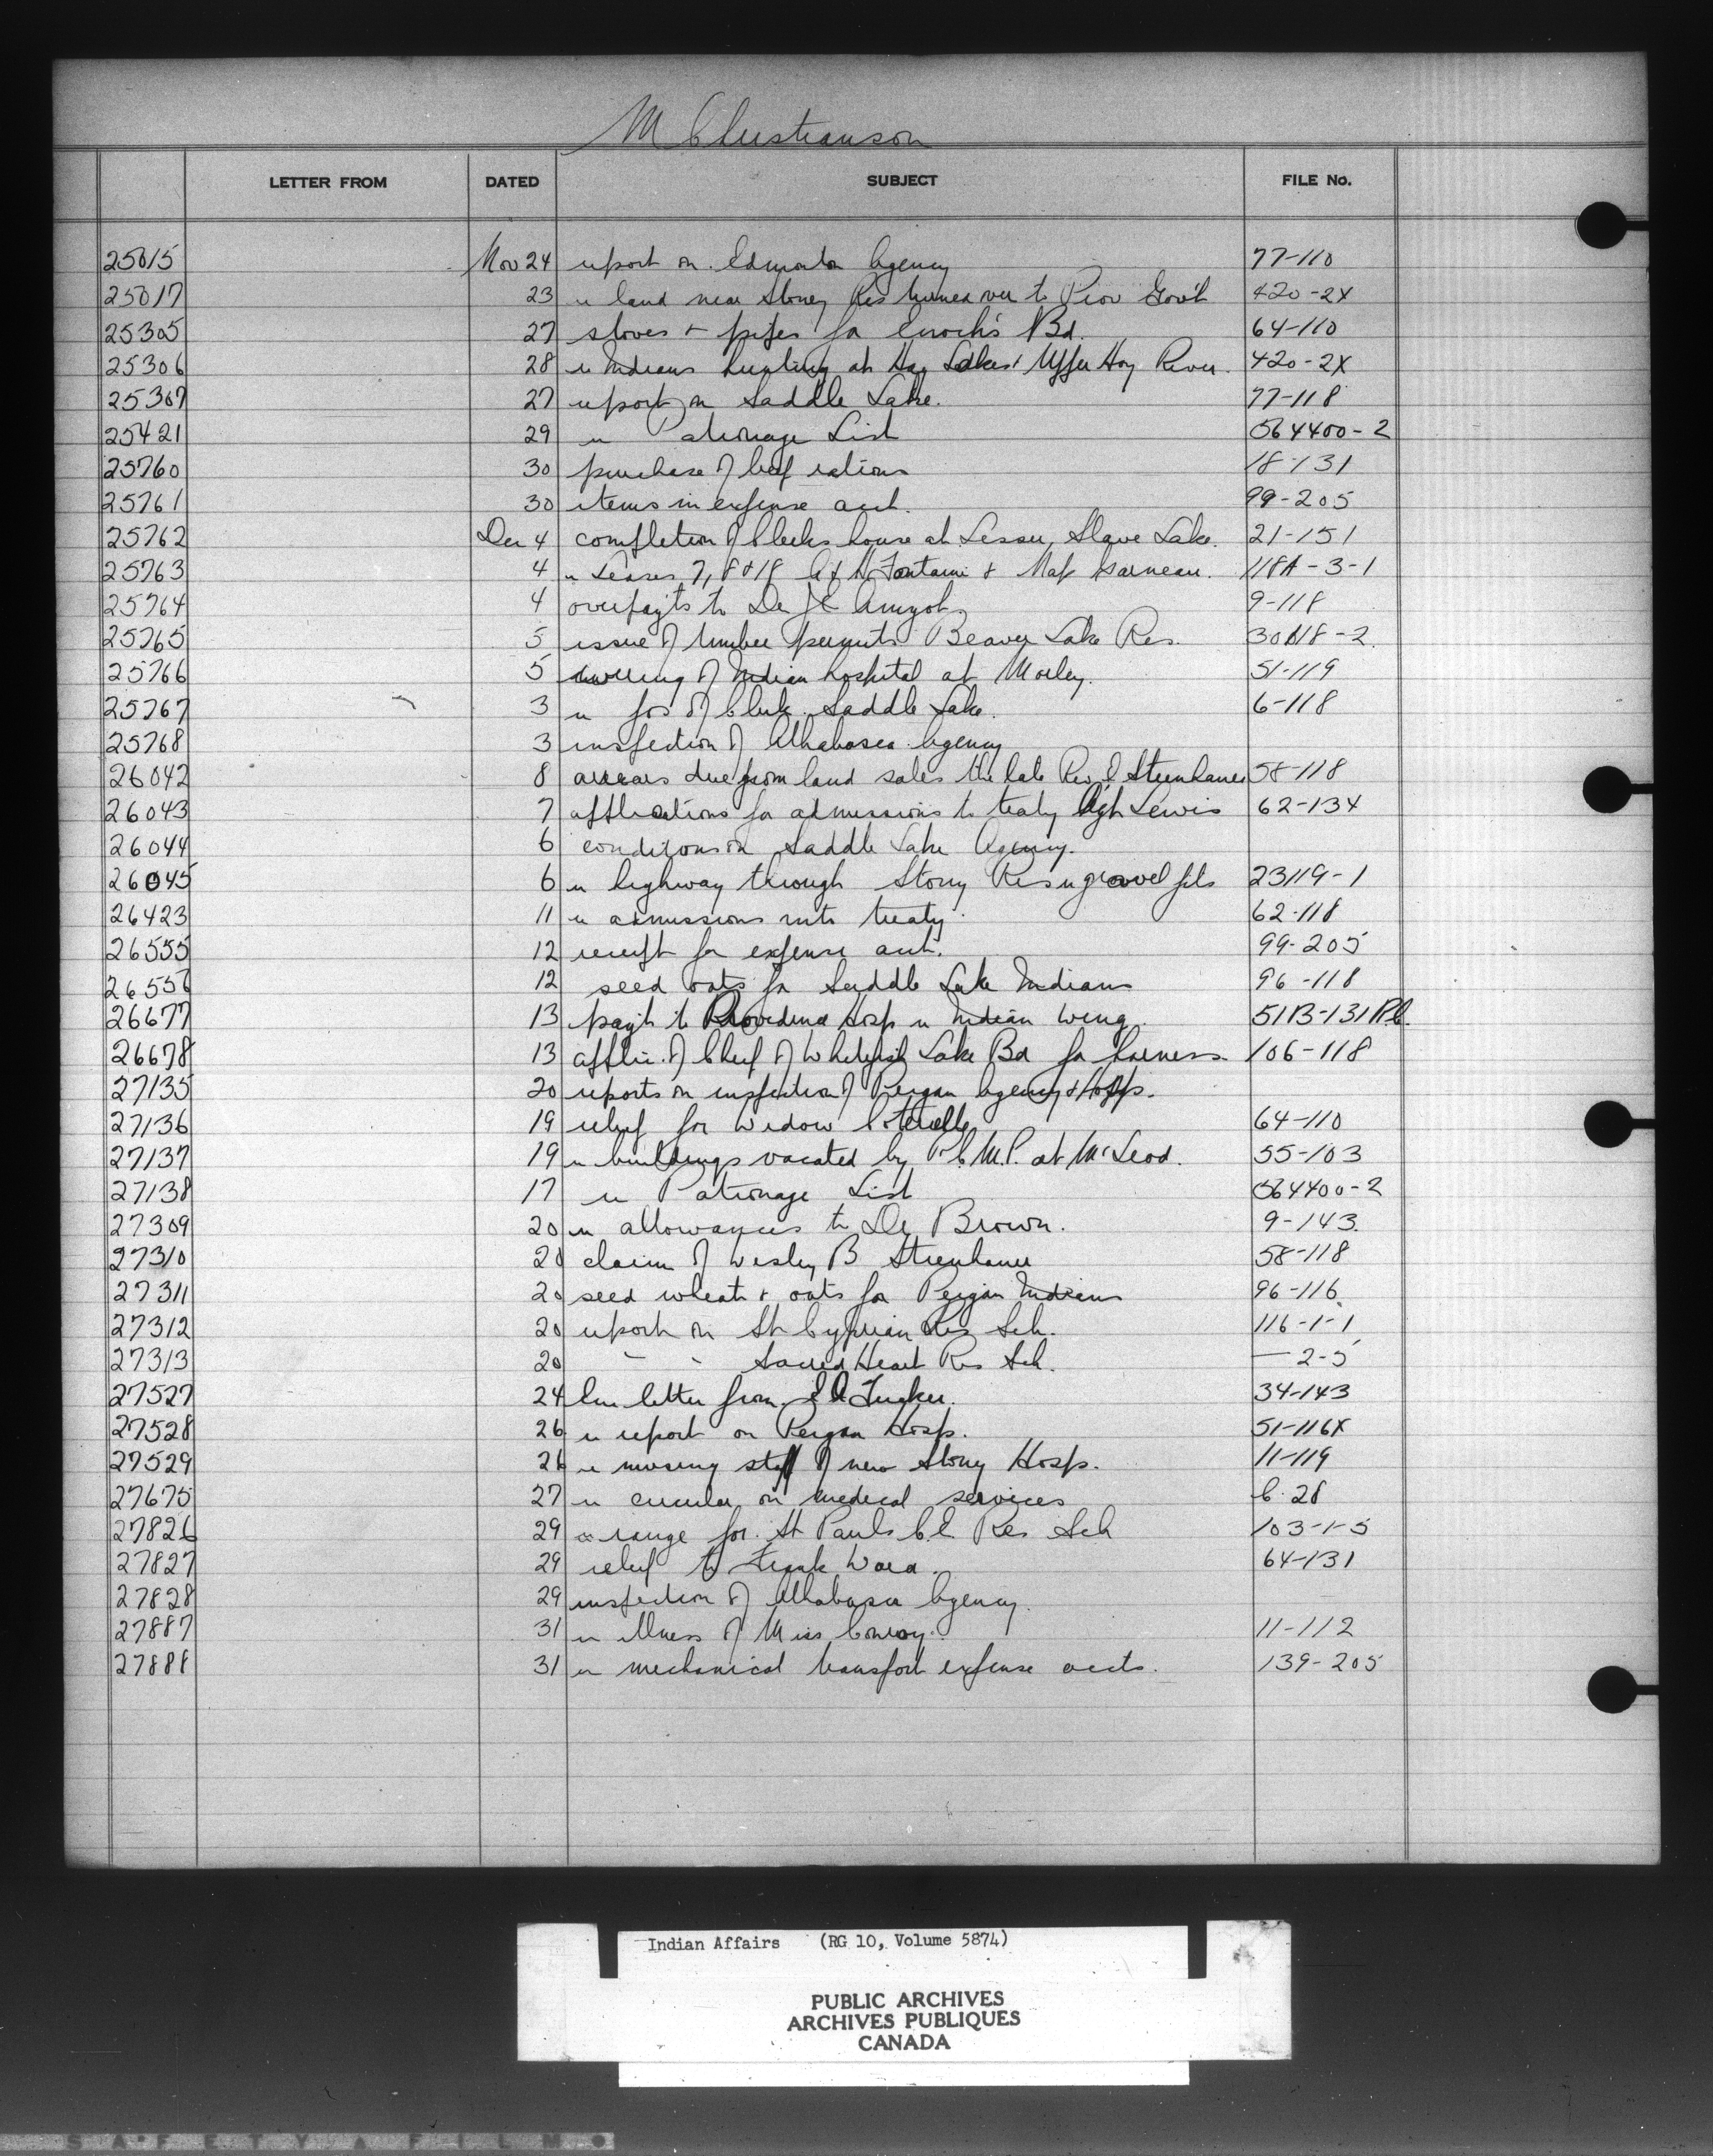 M Christianson
LETTER FROM DATED SUBJECT FILE No.
25015 Nov 24 report on Edmonton Agency 77-110
25017 23 re land near Stoney Res turned over to Prov Gov't 420-2X
25305 27 stoves + pipes for Enoch's Bd. 64-110
25306 28 re Indians hunting at Hay Lakes + Upper Hay River. 420-2X
25307 27 report on Saddle Lake. 77-118
25421 29 re Patronage List 564400-2
25760 30 purchase of beef rations 18-131
25761 30 items in expense acct. 99-205
25762 Dec 4 completion of Clerks house at Lesser Slave Lake. 21-151
25763 4 re Leases 7, 8 & 18 Fontaine & Garneau. 118A-3-1
25764 4 overpayts to Dr Amyot 9-118
25765 5 issue of timber permits Beaver Lake Res. 30118-2
25766 5 of Indian hospital at Morley. 51-119
25767 3 re pos of Clerk Saddle Lake. 6-118
25768 3 inspection of Athabasca Agency
26042 8 arrears due from land sales the late Rev Steinhauer 58-118
26043 7 applications for admissions to treaty Agt Lewis 62-134
26044 6 conditions on Saddle Lake Agency.
26045 6 re highway through Stony Res re gravel pits 23119-1
26423 11 re admissions into treaty 62-118
26555 12 receipt for expense acct. 99-205
26556 12 seed oats for Saddle Lake Indians 96-118
26677 13 pay't to Providence Hosp re Indian Wing. 51B-131Pt.
26678 13 applic. of Chief of Whitefish Lake Bd for harness 106-118
27135 20 reports on inspection of Peigan Agency & Hosps.
27136 19 relief for Widow 64-110
27137 19 re buildings vacated by R.C.M.P. at McLeod. 55-103
27138 17 re Patronage List 564400-2
27309 20 re allowances to Dr Brown. 9-143
27310 20 claim of Wesley B Steinhauer 58-118
27311 20 seed wheat + oats for Peigan Indians 96-116
27312 20 report on St Cyprian Res Sch. 116-1-1
27313 20 " " Sacred Heart Res Sch. — 2-5
27527 24 letter from Tucker. 34-143
27528 26 re report on Peigan Hosp. 51-116X
27529 26 re nursing staff of new Stony Hosp. 11-119
27675 27 re circular on medical services C. 28
27826 29 re range for St Pauls C.E. Res Sch 103-1-5
27827 29 relief to Frank Ward. 64-131
27828 29 inspection of Athabasca Agency.
27887 31 re illness of Miss Conroy. 11-112
27888 31 re mechanical transport expense accts. 139-205
Indian Affairs (RG 10, Volume 5874)
PUBLIC ARCHIVES
ARCHIVES PUBLIQUES
CANADA
SAFETY FILM